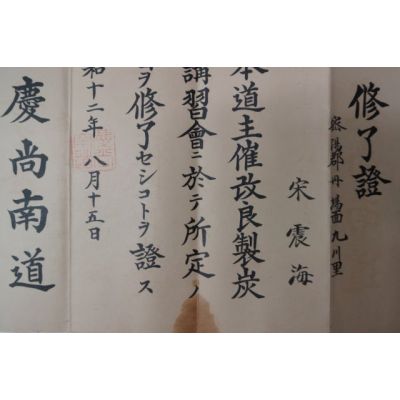 修了證
密陽郡丹場面九川里
宋震海
本道主催改良製炭
講習會ニ於テ所定ノ
ヲ修了セシコトヲ證ス
和十二年 八月十五日
慶尚南道